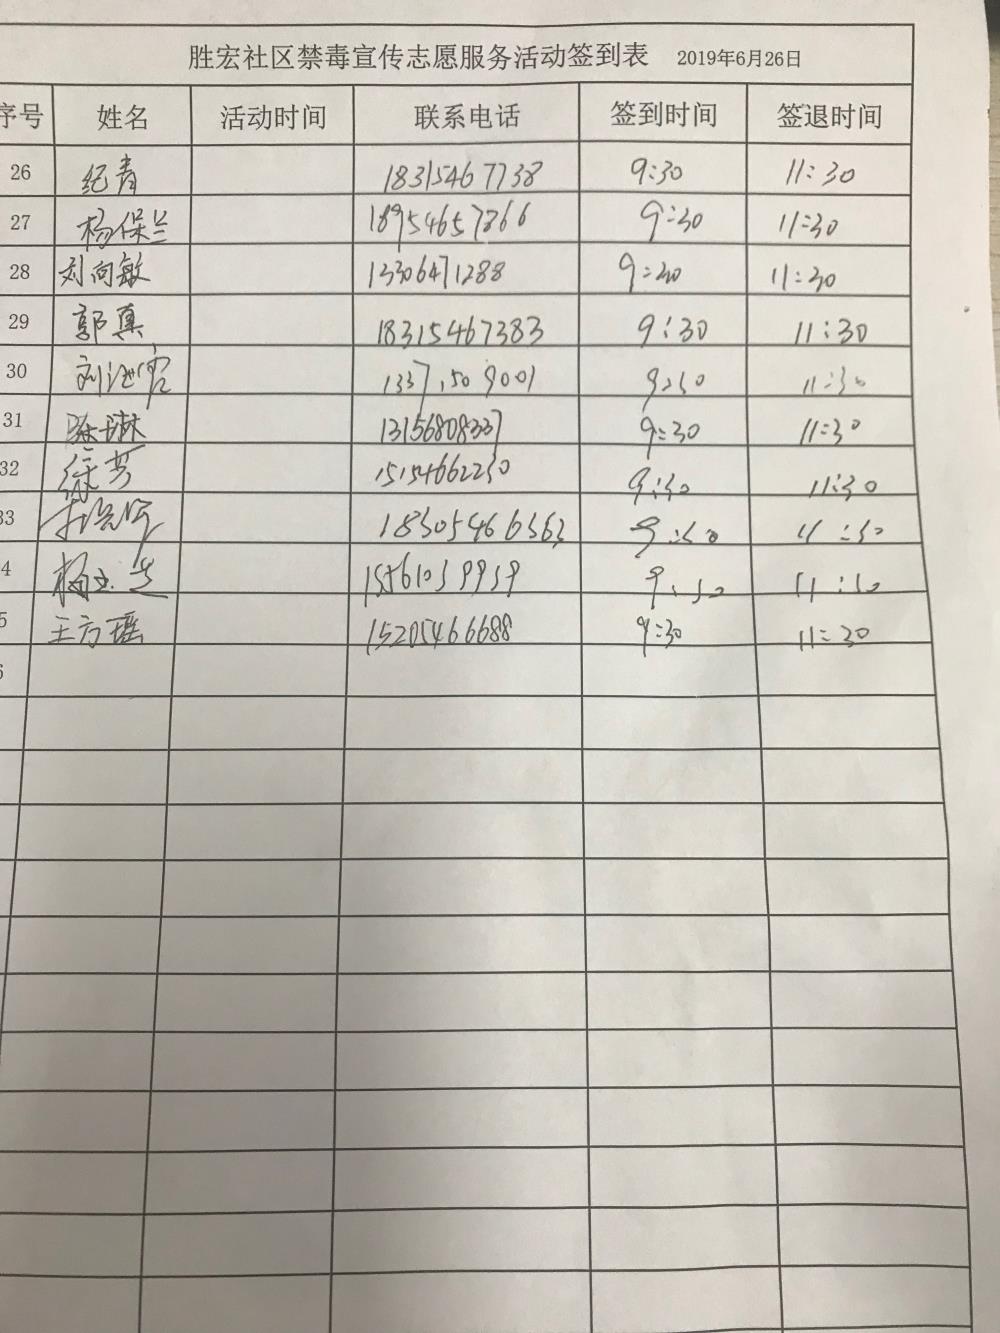 胜宏社区禁毒宣传志愿服务活动签到表 2019年6月26日
序号 姓名 活动时间 联系电话 签到时间 签退时间
26 纪青 18315467738 9:30 11:30
27 杨保兰 18954657866 9:30 11:30
28 刘向敏 13306471288 9:30 11:30
29 郭真 18315467383 9:30 11:30
30 1337 509001 9:30 11:30
31 陈琳 13156808337 9:30 11:30
32 徐芳 15154662230 9:30 11:30
33 18305466363 9:30 11:30
4 15561039939 9:30 11:30
5 王方瑶 15205466688 9:30 11:30
6